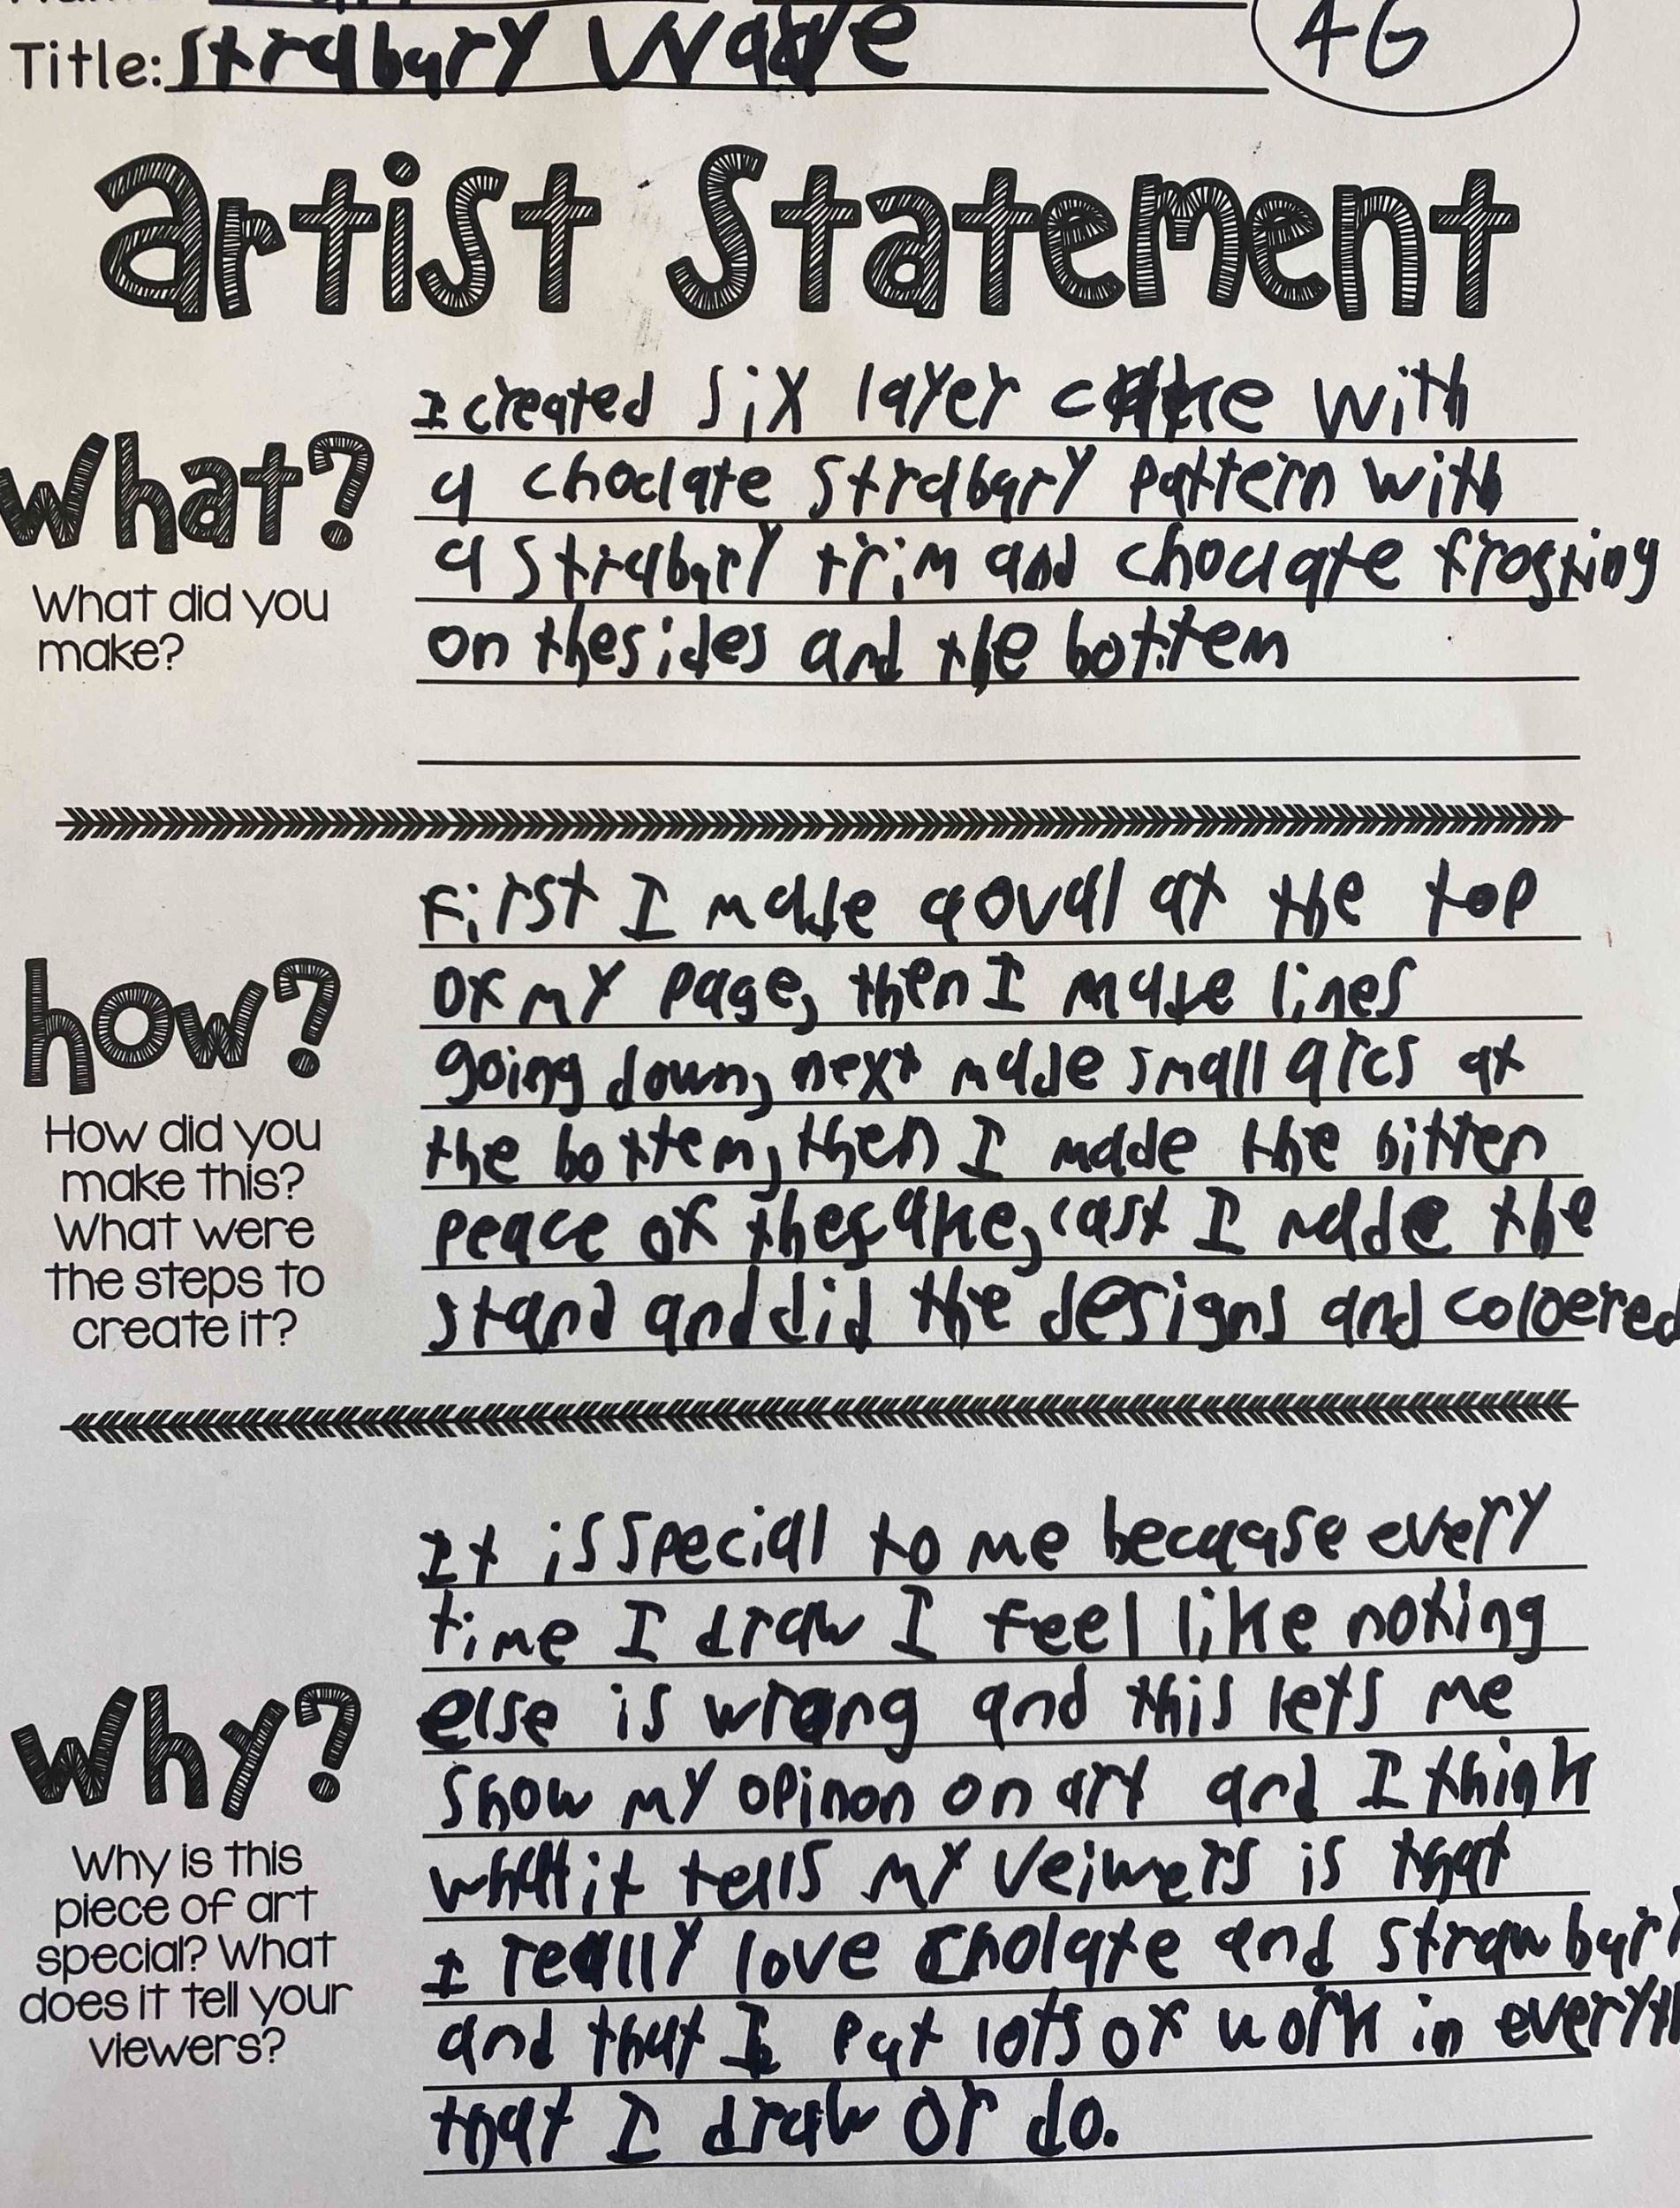 Title: Strabury Wave
4G
artist Statement
what?
What did you
make?
I created six layer cake with
a choclate strabury pattern with
a strabury trim and choclate frosting
on the sides and the bottem
how?
How did you
make this?
What were
the steps to
create it?
First I made a oval at the top
of my page, then I made lines
going down, next made small arcs at
the bottem, then I made the bitten
peace of the cake, last I made the
stand and did the designs and coloered
why?
Why is this
piece of art
special? What
does it tell your
viewers?
It is special to me becaause every
time I draw I feel like noting
else is wrong and this lets me
show my opinon on art and I think
what it tells my veiwers is that
I really love cholate and strawbury
and that I put lots of work in everyth
that I draw or do.